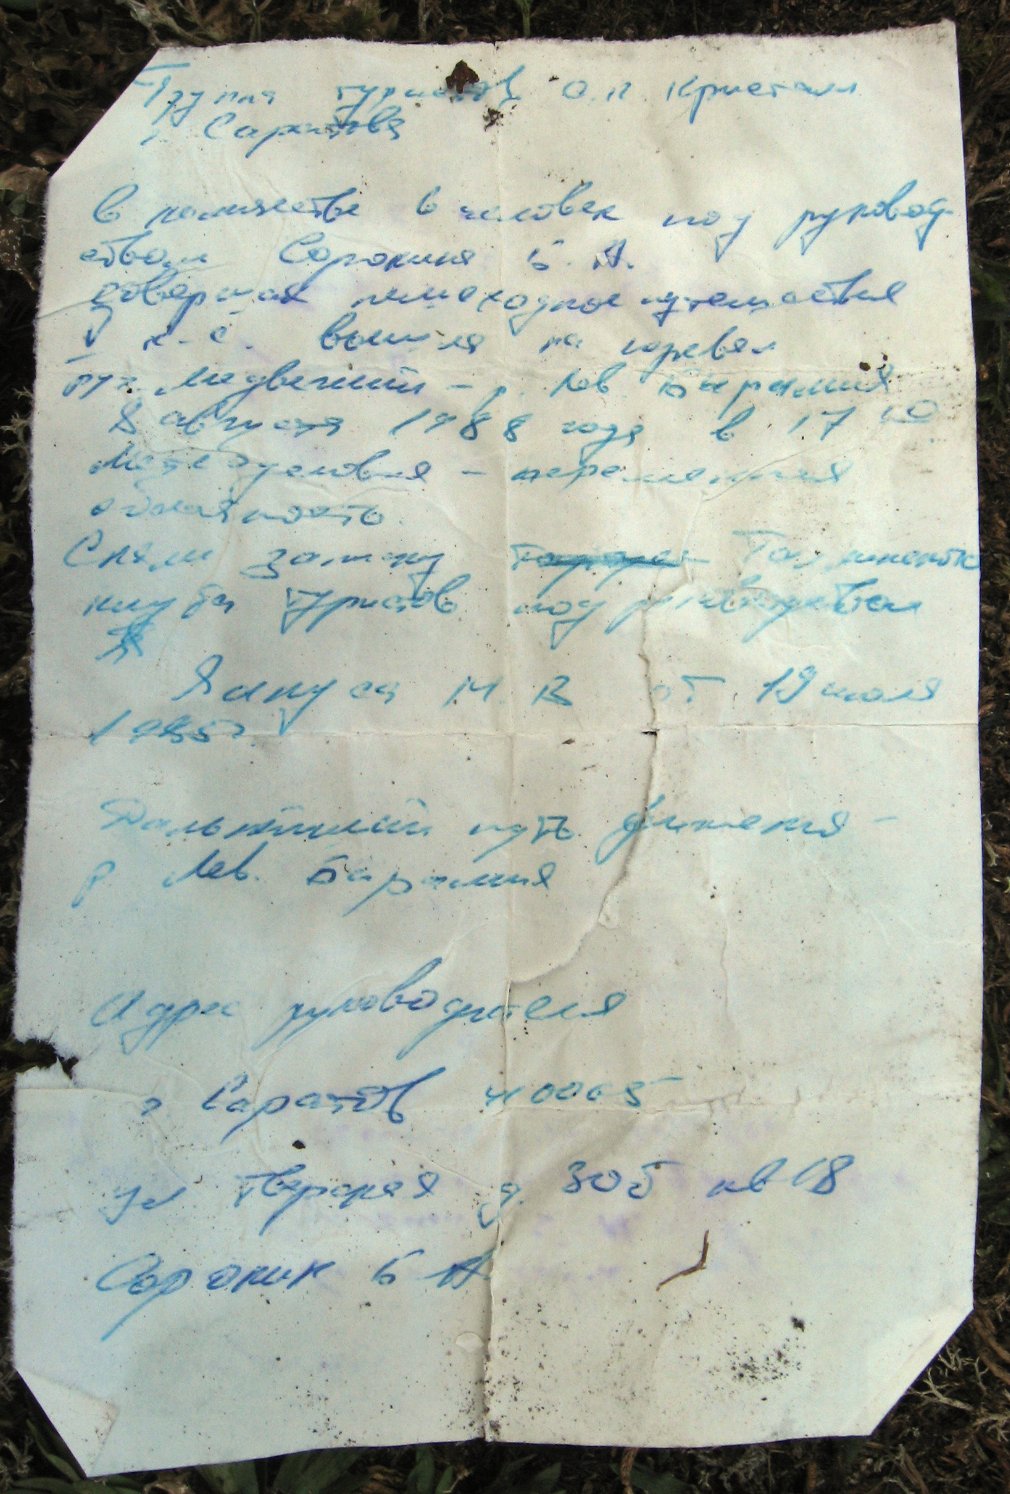 Группа туристов о.к. Кристалл
г. Саратова
в количестве 6 человек под руковод-
ством Сорокина Б. А.
совершая пешеходное путешествие
к.с. вышла на перевал
руч. Медвежий - р. Лев Барамия
8 августа 1988 года в 17 00
Метеоусловия - переменная
облачность.
Сняли записку
клуба туристов под руководством
М. В от 19 июля
1985г.
Дальнейший путь движения -
р Лев. Барамия
Адрес руководителя
г Саратов 410005
ул д. 30б кв 18
Сорокин Б А